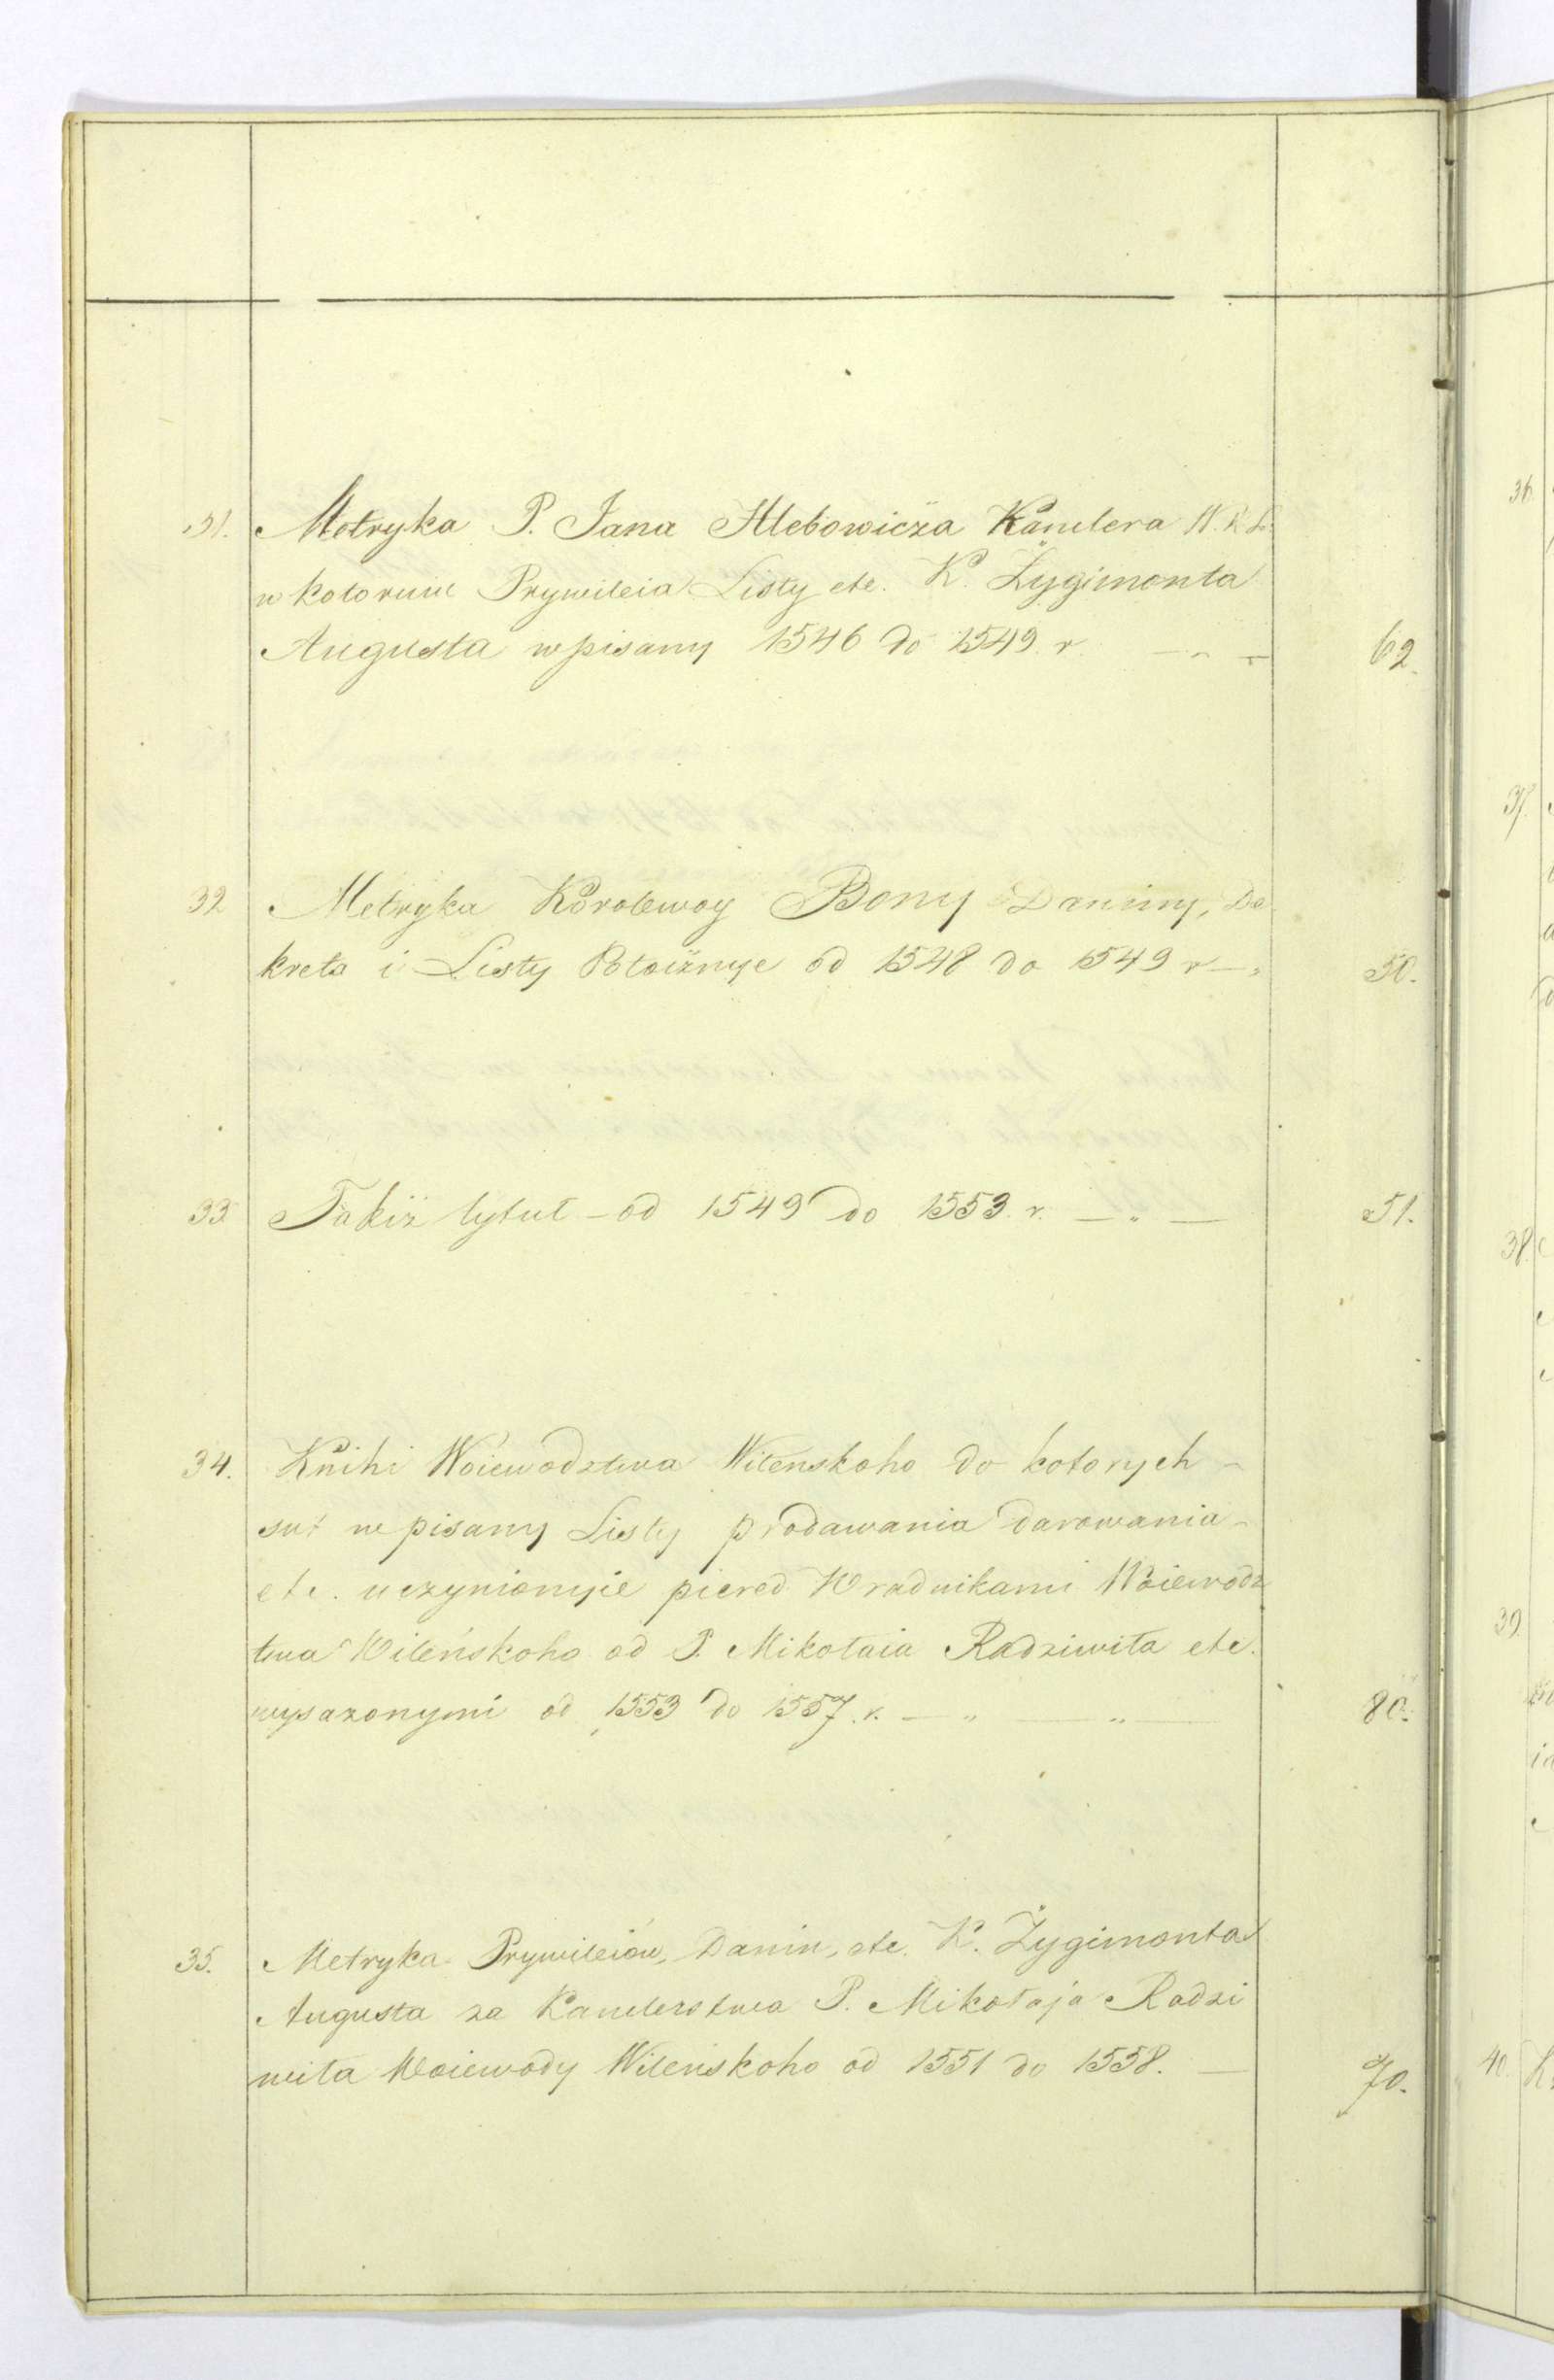 31. Metryka P. Jana Hlebowicża Kanclera W. K. L.
w kotoruiu Prywileia Listy etc. K. Żygimonta
Augusta wpisany 1546 do 1549 r. 62.
32 Metryka Korolewoy Bony Daniny, De
kreta i Listy Potoiżnyie od 1548 do 1549 r 50.
33 Takiż tytuł – od 1549 do 1553 r. 51.
34. Knihi Woiewodztwa Wilenskoho do kotorych
sut wpisany Listy prodawania darowania
etc. uczynionyie piered Wradnikami Woiewodz
twa Wileńskoho od P. Mikołaia Radziwiła etc.
wysazonymi od 1553 do 1557. r. 80.
35. Metryka Prywileiów, Danin, etc. K. Żygimonta
Augusta za Kanclerstwa P. Mikołaja Radzi
wiła Woiewody Wileńskoho od 1551 do 1558. 70.
36
37.
38.
39.
40.